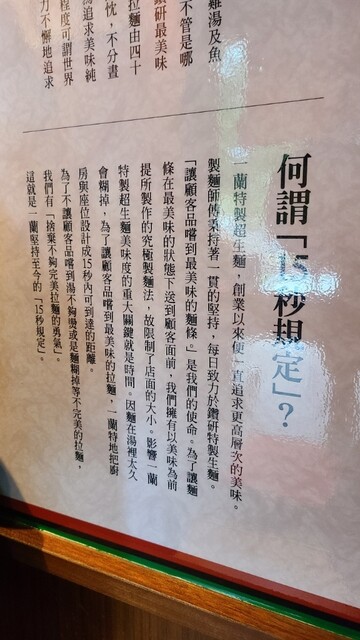 雞湯及魚
不管是哪
鑽研最美味
拉麵由四十
忱，不分晝
為追求美味純
程度可謂世界
力不懈地追求
何謂「15秒規定」？
一蘭特製超生麵，創業以來便一直追求更高層次的美味。
製麵師傅秉持著一貫的堅持，每日致力於鑽研特製生麵。
「讓顧客品嚐到最美味的麵條」是我們的使命。為了讓麵
條在最美味的狀態下送到顧客面前，我們擁有以美味為前
提所製作的究極製麵法，故限制了店面的大小。影響一蘭
特製超生麵美味度的重大關鍵就是時間。因麵在湯裡太久
會糊掉，為了讓顧客品嚐到最美味的拉麵，一蘭特地把廚
房與座位設計成15秒內可到達的距離。
為了不讓顧客品嚐到湯不夠燙或是麵糊掉等不完美的拉麵，
我們有「捨棄不夠完美拉麵的勇氣」。
這就是一蘭堅持至今的「15秒規定」。